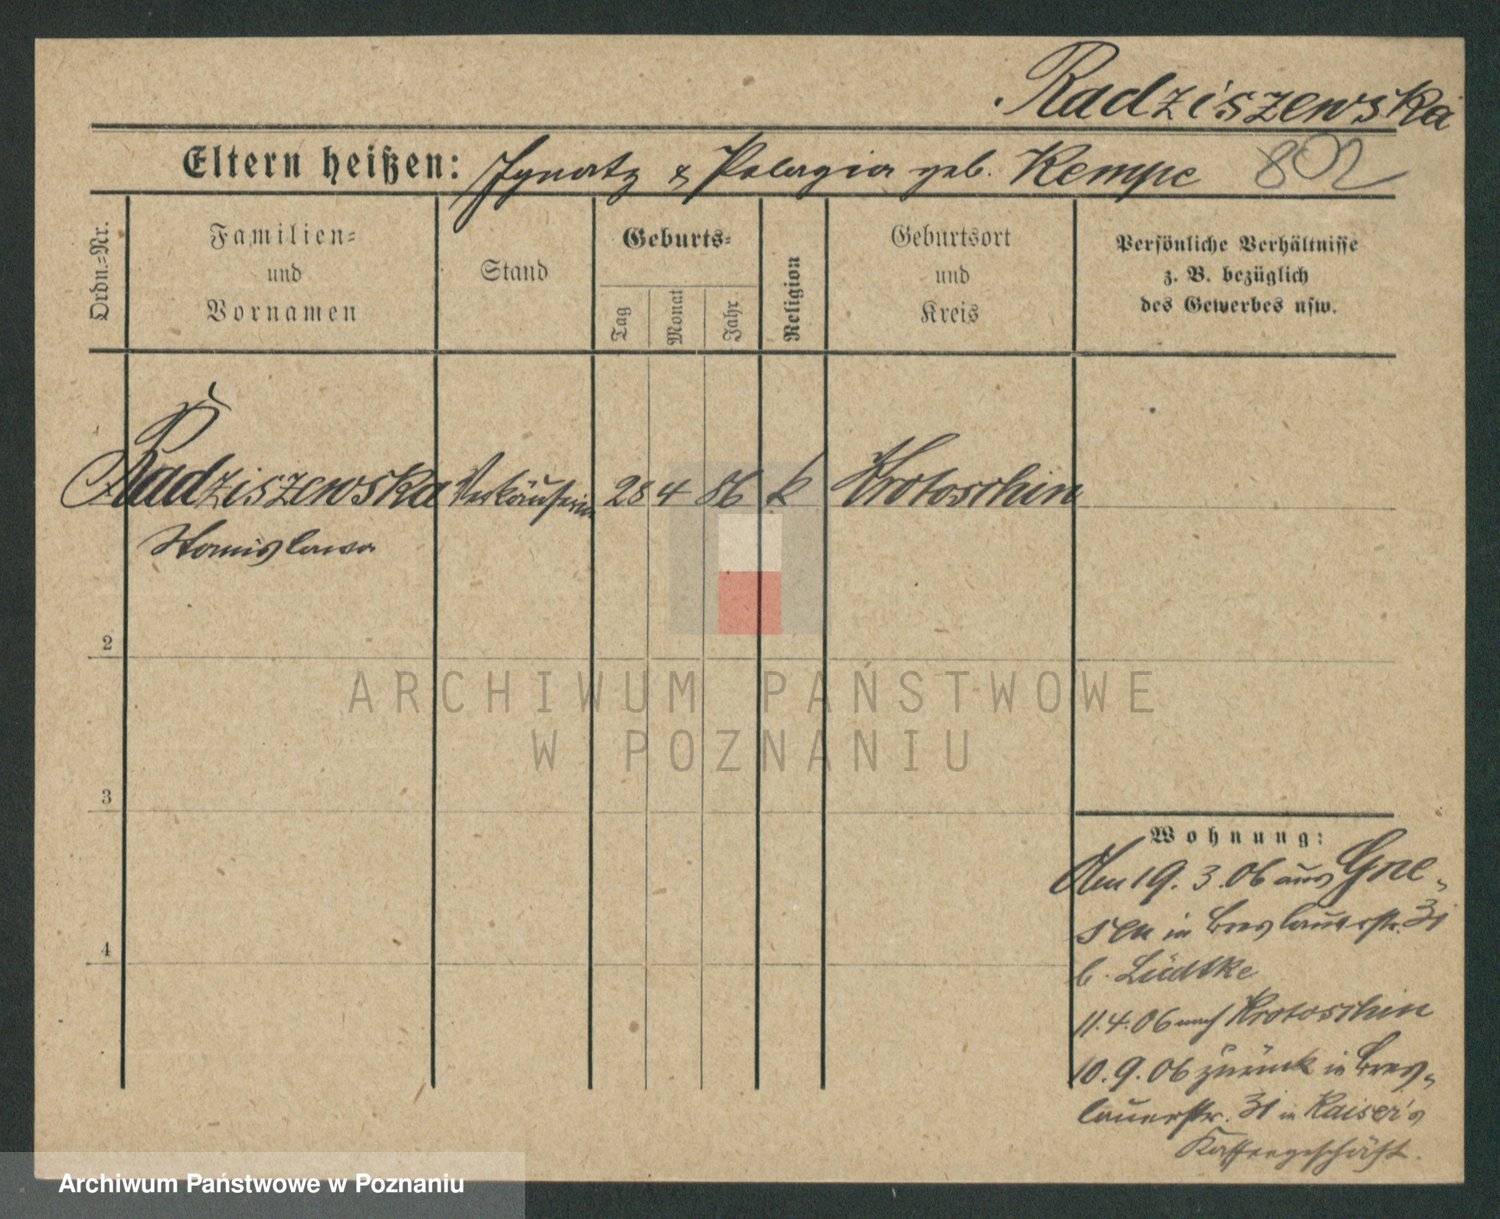 Radziszewska
Eltern heißen: Ignatz & Pelagia geb. Kempe 802
Ordn.-Nr.
Familien-
und
Vornamen
Stand
Geburts-
Tag
Monat
Jahr
Religion
Geburtsort
und
Kreis
Persönliche Verhältnisse
z. B. bezüglich
des Gewerbes usw.
Radziszewska Verkäuferin 28 4 86 k Krotoschin
Stanislawa
2
3
4
ARCHIWUM PAŃSTWOWE
W POZNANIU
Wohnung:
Am 19. 3. 06 aus Gne-
sen in Breslauerstr. 31
b. Lüdtke
11.4.06 nach Krotoschin
10.9.06 zurück in Bres-
lauerstr. 31 in Kaiser's
Kaffeegeschäft.
Archiwum Państwowe w Poznaniu